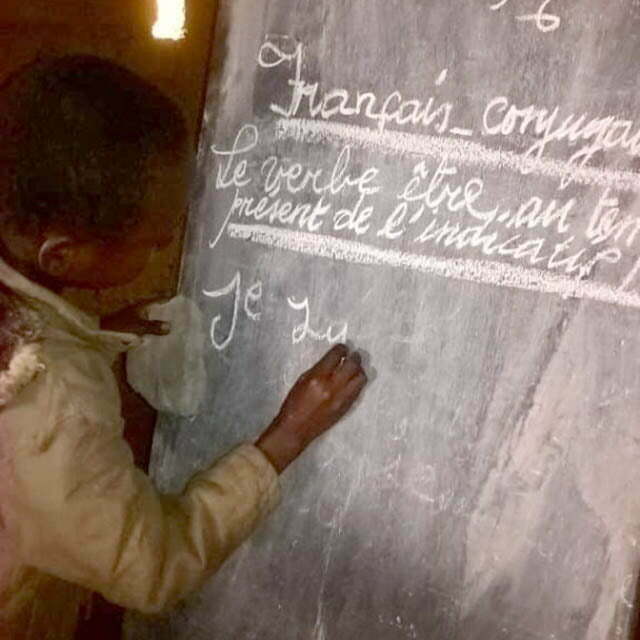 6
Français - conjugai
Le verbe être au tem
présent de l'indicatif
Je